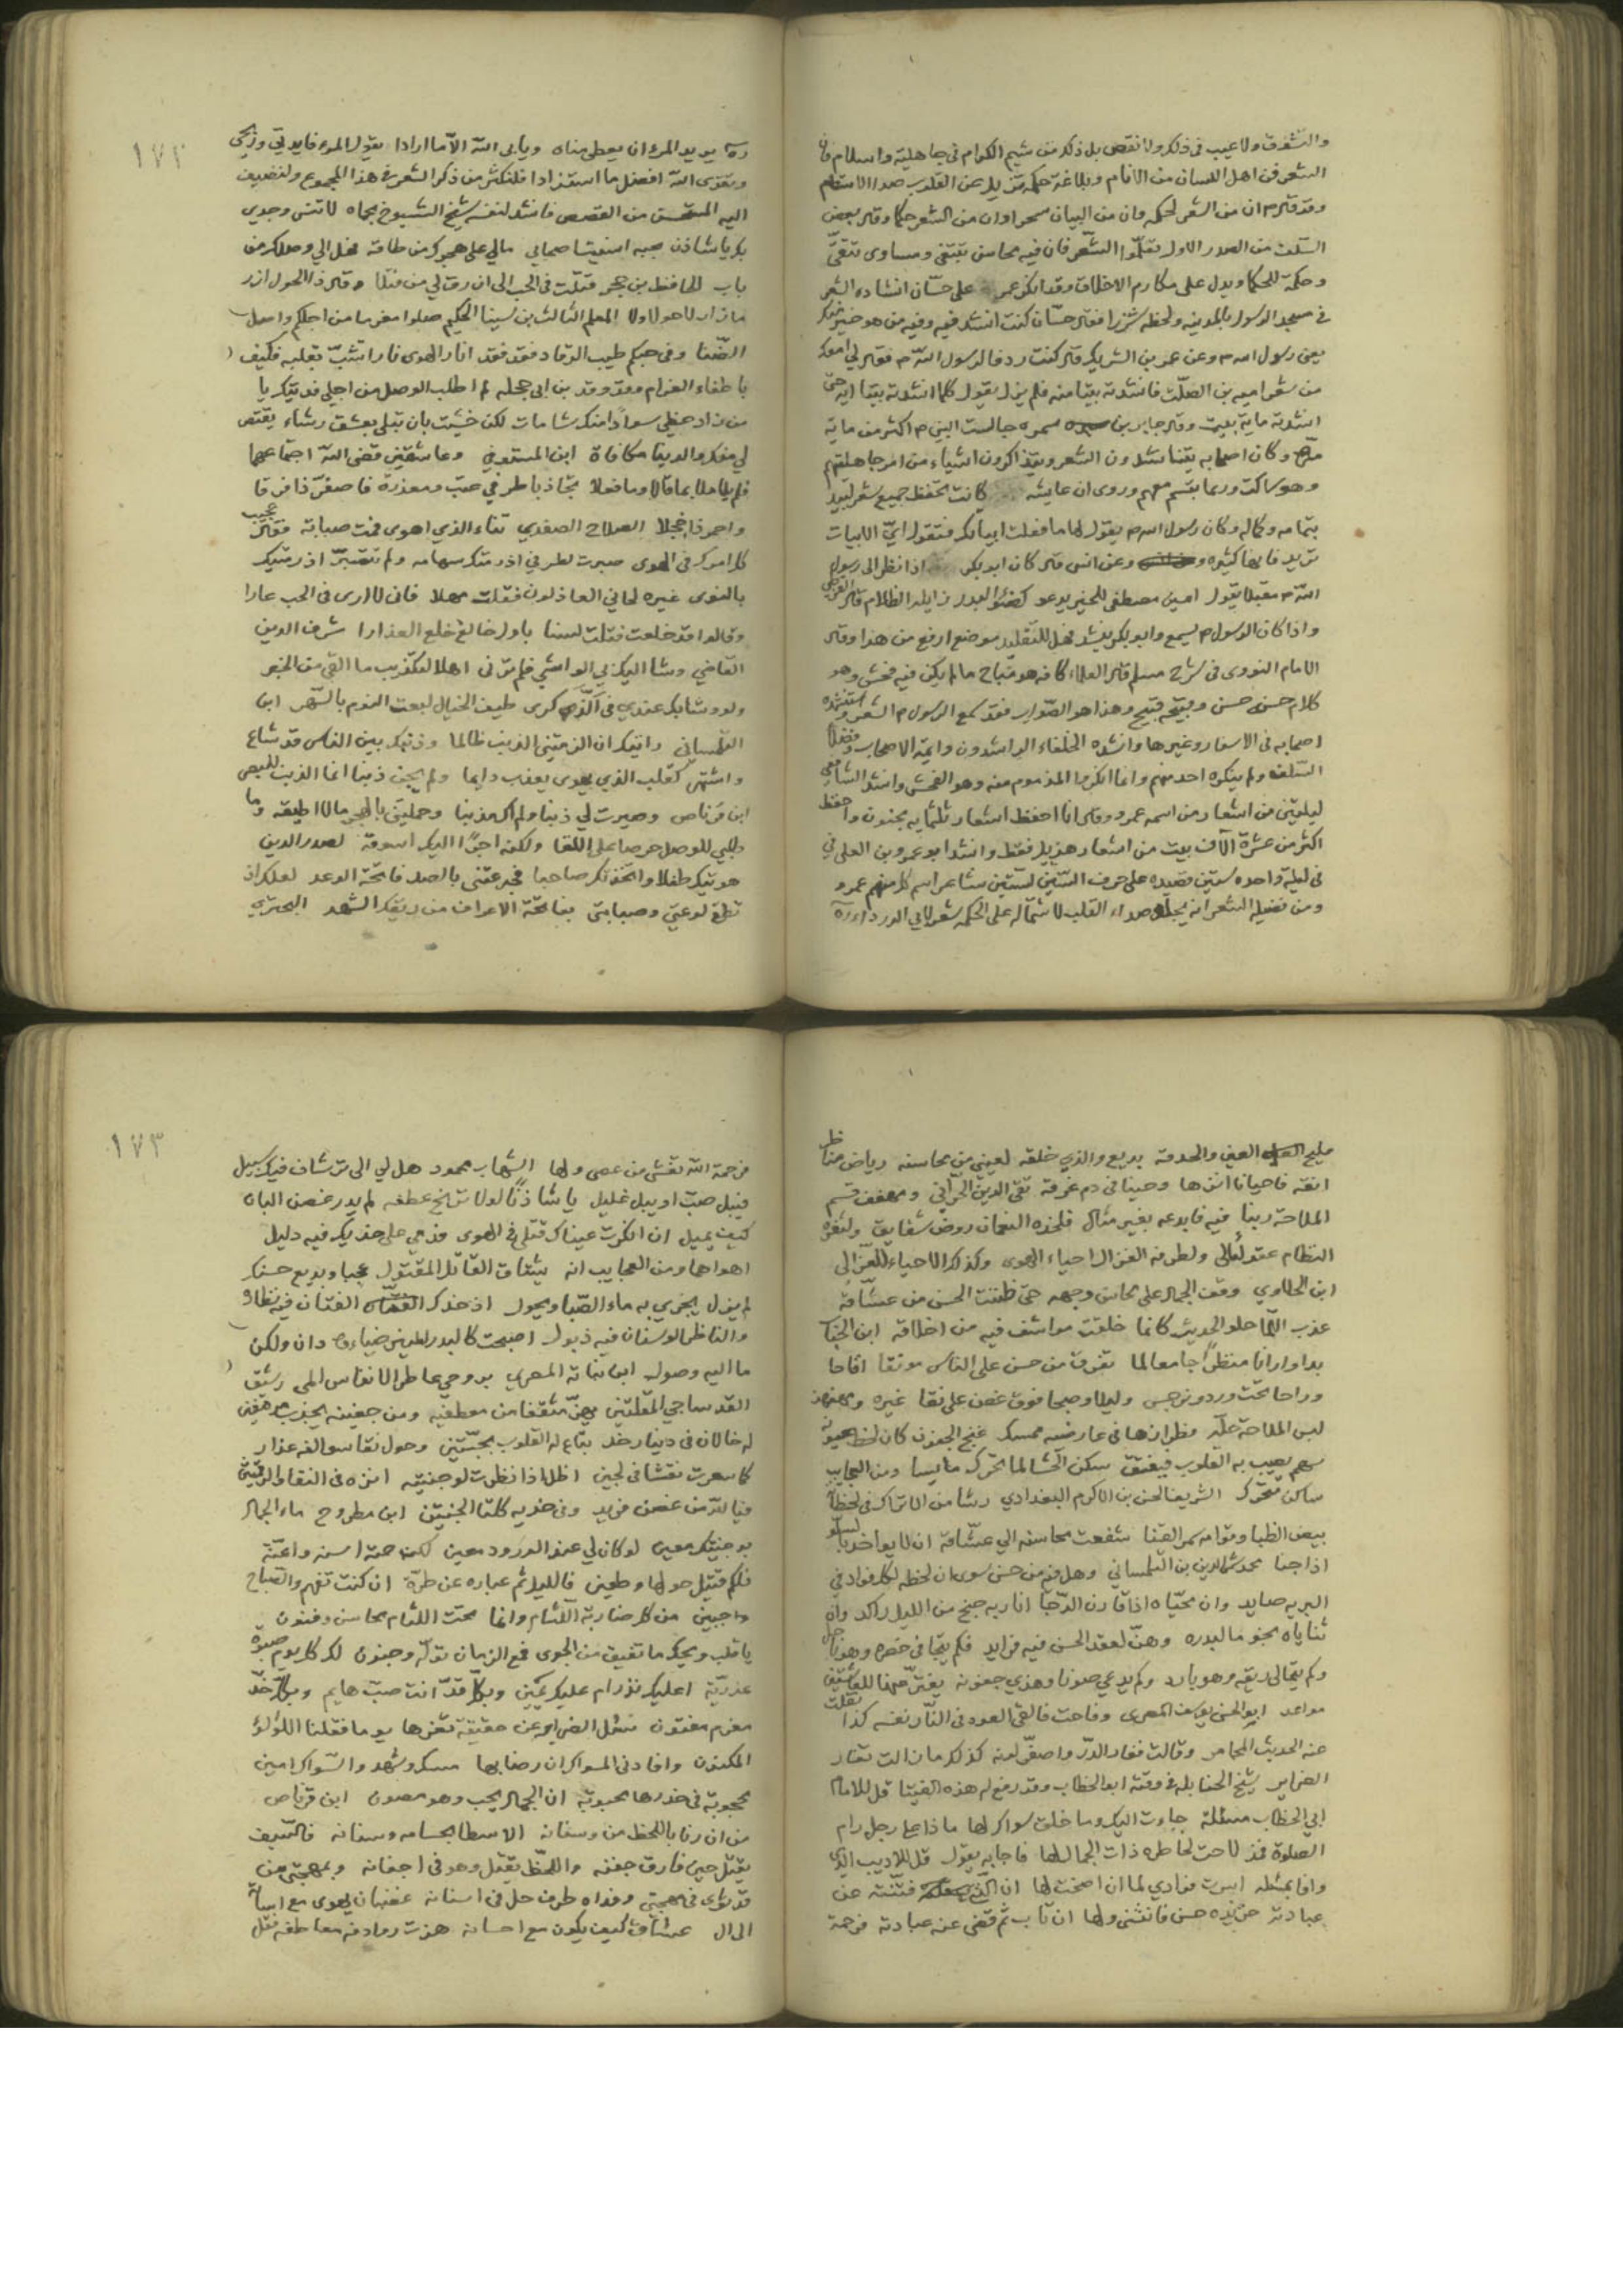 والتشوق ولا عيب في ذلك ولا نقص بل ذلك من شيم الكرام في جاهلية واسلام فان
الشعر فن اهل اللسان من الانام وبلاغة حكمه تزيل عن القلوب صدا الاسقام
وقد قال م ان من الشعر لحكمه وان من البيان سحرا وان من الشعر حكما وقال بعض
السلف من الصدر الاول تعلّموا الشّعر فان فيه محاسن تبتغى ومساوى تتقى
وحكمة للحكما ويدل على مكارم الاخلاق وقد انكر عمر على حسّان انشاده الشعر
في مسجد الرسول بالمدينه ولحظه شزرا فقال حسّان كنت انشد فيه وفيه من هو خير منك
يعني رسول الله م وعن عمر بن الشريك قال كنت ردفا لرسول اللّه م فقال لي امعك
من شعر اميه بن الصلت فانشدته بيتا منه فلم يزل يقول كلما انشدته بيتا ايه حتى
انشدته ماية بيت وقال جابر بن سمره جالست النبي م اكثر من ماية
مرّه وكان اصحابه يتناشدون الشعر ويتذاكرون اشياء من امر جاهليتهم
وهو ساكت وربما تبسم معهم وروى ان عايشه كانت تحفظ جميع شعر لبيد
بتمامه وكماله وكان رسول الله م يقول لها ما فعلت ابياتك فتقول ايّ الابيات
تريد فانها كثيره وعن انس قال كان ابو بكر اذا نظر الى رسول
اللّه م مقبلا يقول امين مصطفى للخير يدعو كضوء البدر زايله الظلام قال القرطبي
واذا كان الرسول م يسمع وابو بكر ينشد فهل للتقليد موضع ارفع من هذا وقال
الامام النووى في شرح مسلم قال العلماء كافه هو مباح ما لم يكن فيه فحش وهو
كلام حسنه حسن وقبيحه قبيح وهذا هو الصّواب فقد سمع الرسول م الشعر واستنشده
اصحابه في الاسفار وغيرها وانشده الخلفاء الراشدون وايمة الاصحاب وفضلا
السّلف ولم ينكره احد منهم وانما انكروا المذموم منه وهو الفحش وانشد الشافعي
ليلتين من اشعار من اسمه عمرو وقال انا احفظ اشعار ثلثمايه مجنون واحفظ
اكثر من عشرة الاف بيت من اشعار هذيل فقط وانشد ابو عمرو بن العلى في
في ليلة واحده ستين قصيده على حرف السّين لستين شاعر اسم كل منهم عمرو
ومن فضيله الشعر انه يجلو صداء القلب لاشتماله على الحكمه شعر لابي الدرداء رة
١٧٢
رة يريد المرء ان يعطى مناه ويابى اللّه الّا ما ارادا يقول المرء فايدتي وربحي
وتقوى اللّه افضل ما استفادا فلنكثر من ذكر الشعر في هذا المجموع ولنضيف
اليه المستحسن من القصص فانشد لنفسه شيخ الشيوخ بحماه لا تنس وجدي
بك يا شادن بحبه انسيت اصحابي مالي على هجرك من طاقه فهل الي وصلك من
باب للحافظ بن حجر قتلت في الحب الى ان رق لي من قتلا وقال ذا الحول ازر
ما زار لا حول ولا المعلم الثالث بن سينا الحكيم صلوا مغرما من اجلكم واصل
الضّنا وفي حبكم طيب الرقاد فقد فقد انار الهوى نارا تشبّ بقلبه فكيف
باطفاء الغرام وقد وقد بن ابى حجله لم اطلب الوصل من اجلي فديتك يا
من زاد حظي سوادا منك شامات لكن خشيت بان تبلى بعشق رشاء يقتص
لي منك والدنيا مكافاة ابن المستوفي وعاشقين قضى اللّه اجتماعهما
فلم يبلا بما قالا وما فعلا تجاذبا طرفي عتب ومعذره فاصفرّ ذا فرقا
واحمر ذا خجلا الصلاح الصفدي تناء الذي اهوى فمت صبابة فقالوا عجيب
كل امورك في الهوى صبرت لطرفي اذ رمتك سهامه ولم تصبر اذ رمتك
بالنوى غيره لحاني العاذلون فقلت مهلا فاني لا ارى في الحب عارا
وقالوا قد خلعت فقلت لسنا باول خالع خلع العذارا شرف الدين
القاضي وشا اليك بي الواشي فلم ترني اهلا لتكذيب ما القى من الخبر
ولو وشا بك عندي في الذّ كرى طيف الخيال لبعت النوم بالسّهر ابن
التلمساني رايتك ان الزمتني الذنب ظالما وذنبك بين الناس قد شاع
واشتهر كقلب الذي يهوى يعذب دايما ولم يجن ذنبا انما الذنب للبصر
ابن قرناص وصيرت لي ذنبا ولم اك مذنبا وحملتني بالهجر مالا اطيقه وما
طلبي للوصل حرصا على اللقا ولكنه اجرا اليك اسوقه لصدر الدين
هويتك طفلا واتخذتك صاحبا فجرعتني بالصد فاتحة الوعد لعلك ان
تطفي لوعتي وصبابتي بفاتحة الاعراف من ريقك الشهد البحتري
مليح العين والحدقه بديع والذي خلقه لعيني من محاسنه رياض مناظر
انقه فاحيانا انزها وحينا في دم غرقه تقي الدين الحرّاني ومهفهف قسم
الملاحة ربنا فيه فابدعه بغير مثال فلخده النعمان روض شقايق ولثغره
النظام عقد لٔالى ولطرفه الغزال احياء الهوى وكذلك الاحياء للغزّالى
ابن الحلاوي وقف الجمال على محاسن وجهه حتى ظننت الحسن من عشّاقه
عذب اللّما حلو الحديث كانما خلقت مراشف فيه من اخلاقه ابن الخباز
بدا وارانا منظرا جامعا لما تفرق من حسن على الناس مونقا اقاحا
وراحا تحت ورد ونرجس وليلا وصبحا فوق غصن على نقا غيره ومهفهف
لبس الملاحة حلّه وطرازها في عارضيه ممسك غنج الجفون كان لحظ عيونه
سهم يصيب به القلوب فيفتك سكن الحشا لما تحرّك مايسا ومن العجايب
ساكن متحرّك الشريف الحسن بن الاكرم البغدادي رشا من الاتراك في لحظه
بيض الظبا وقوامه سمر القنا شفعت محاسنه الي عشّاقه ان لا يواخذ باساءة
اذا جنا محمد شمس الدين بن التلمساني وهل فيه من حسن سوى ان لحظه لكل فؤاد في
البريه صايد وان محيّاه اذا قارن الدّجا انار به جنح من الليل راكد وان
ثناياه نجوم لبدره وهنّ لعقد الحسن فيه فرايد فكم يتجافى خصره وهو ناحل
وكم يتحالى ريقه وهو بارد وكم يدعي صونا وهذي جفونه بفترتها للعاشقين
مواعد ابو الحسن يوسف المصرى وفاحت فالقى العود في النّار نفسه كذا نقلت
عنه الحديث المجامر وقالت فغار الدّر واصفرّ لونه كذلك ما زالت تغار
الضراير شيخ الحنابله في وقته ابو الخطاب وقد رفع له هذه الفتيا قل للامام
ابي الخطاب مسئلة جاءت اليك وما خلق سواك لها ماذا على رجل رام
الصلوة فمذ لاحت لخاطره ذات الجمال لها فاجابه يقول قل للاديب الذي
وافا بمسئله اسرت فوادي لما ان اصخت لها ان الذي فتنته عن
عبادته خريده حسن فانثنى ولها ان تاب ثم قضى عنه عبادته فرحمة
١٧٣
فرحمة اللّه تغشى من عصى ولها الشهاب محمود هل لي الى ترشاف فيك سبيل
فيبل صبّ او يبل غليل يا شاذنًا لولا ترنّح عطفه لم يدر غصن البان
كيف يميل ان انكرت عيناك قتلي في الهوى فدمي على خديك فيه دليل
اهواهما ومن العجايب انه يشتاق القاتل المقتول عجبا وبديع حسنك
لم يزل يجري به ماء الصّبا ويجول اذ خدك الفتان فيه نظارة
والناظر الوسنان فيه ذبول اصبحت كالبدر المنير ضياءه دان ولكن
ما اليه وصول ابن نباته المصري بروحي عاطر الانفاس المى رشيق
القد ساجي المقلتين يهزّ مثقفا من معطفيه ومن جفنيه يجذب مرهفين
له خالان في دينار خد تباع له القلوب بحبّتين وحول نقا سوالفه عذار
كما سمرت نقشا في لجين اظل اذا نظرت لوجنتيه انزه في النقا والرقمتين
فيا للّه من غصن فريد وفي خديه كلتا الجنتين ابن مطروح ماء الجمال
بوجنتيك معين لو كان لي عند الورود معين لكن حمته اسنه واعنّة
فلكم قتيل حولها وطعين فالليل ثم عباره عن طرّة ان كنت تفهم والصباح
جبين من كل ضاربة اللّثام وانما تحت اللثام محاسن وفنون
يا قلب ويحك ما تفيق من الجوى في الزمان تولّه وجنون لك كل يوم صبوة
عذريّة اعليك نذر ام عليك يمين وبكل قدّ انت صبّ هايم وبكل خدّ
مغرم مفتون سئل الضراير عن حقيقة ثغرها يوما فقلنا اللؤلؤ
المكنون وافادني المسواك ان رضابها مسك وشهد والسّواك امين
محجوبة في خدرها محبوبة ان الجمال يحب وهو مصون ابن قرناص
من ان رنا باللحظ من وسنانه الا سطا بحسامه وسنانه فالسّيف
يقتل حين فارق جفنه واللحظ يقتل وهو في اجفانه وبمهجتي من
قد ثوى في مهجتي وفداه طرف حل في انسانه غضبان يهوى مع اساة
الى ال عشاق كيف يكون مع احسانه هزت روادفه معاطفه فقل